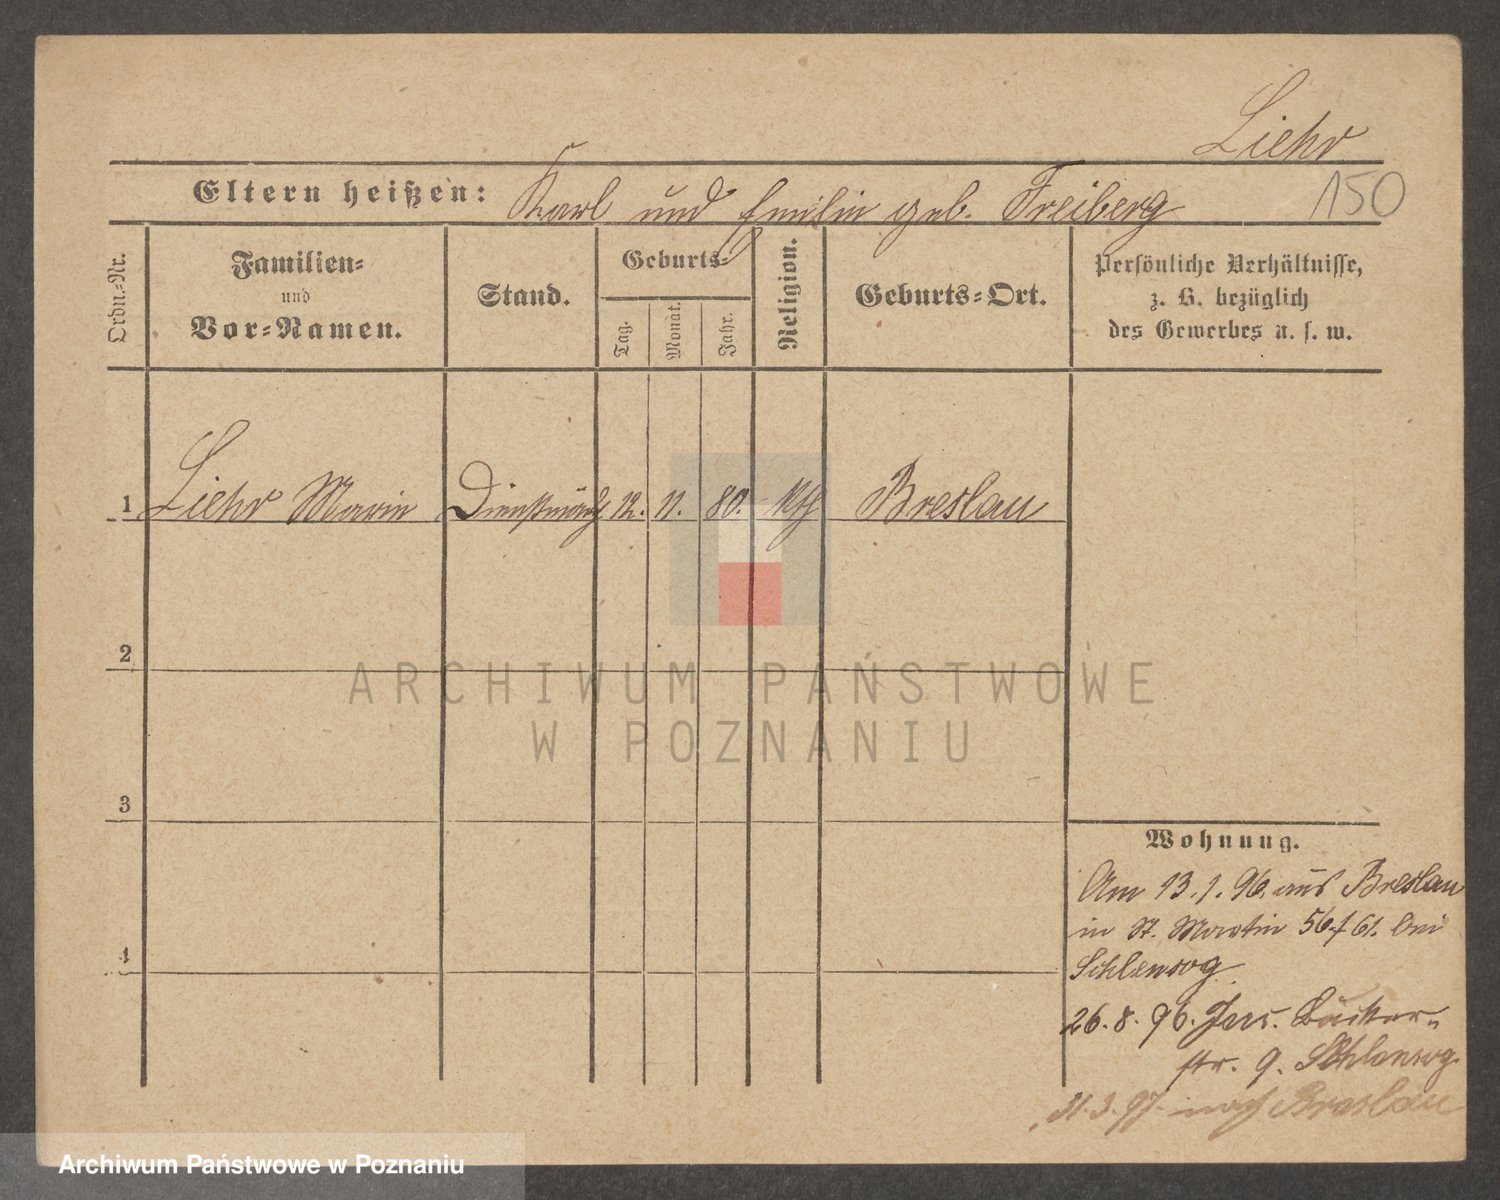 Liehr
Eltern heißen: Karl und Emilie geb. Freiberg 150
Ordn.-Nr.
Familien-
und
Vor-Namen.
Stand.
Geburts-
Tag.
Monat.
Jahr.
Religion.
Geburts-Ort.
Persönliche Verhältnisse,
z. B. bezüglich
des Gewerbes u. s. w.
1 Liehr Marie Dienstmäd. 12. 11. 80. kth Breslau
2
3
4
Wohnung.
Am 13.1.96. aus Breslau
in St. Martin 56/61. bei
Schlensog
26.8.96. Jers. Bäcker-
str. 9. Schlensog
31.3.97. nach Breslau
ARCHIWUM PAŃSTWOWE
W POZNANIU
Archiwum Państwowe w Poznaniu